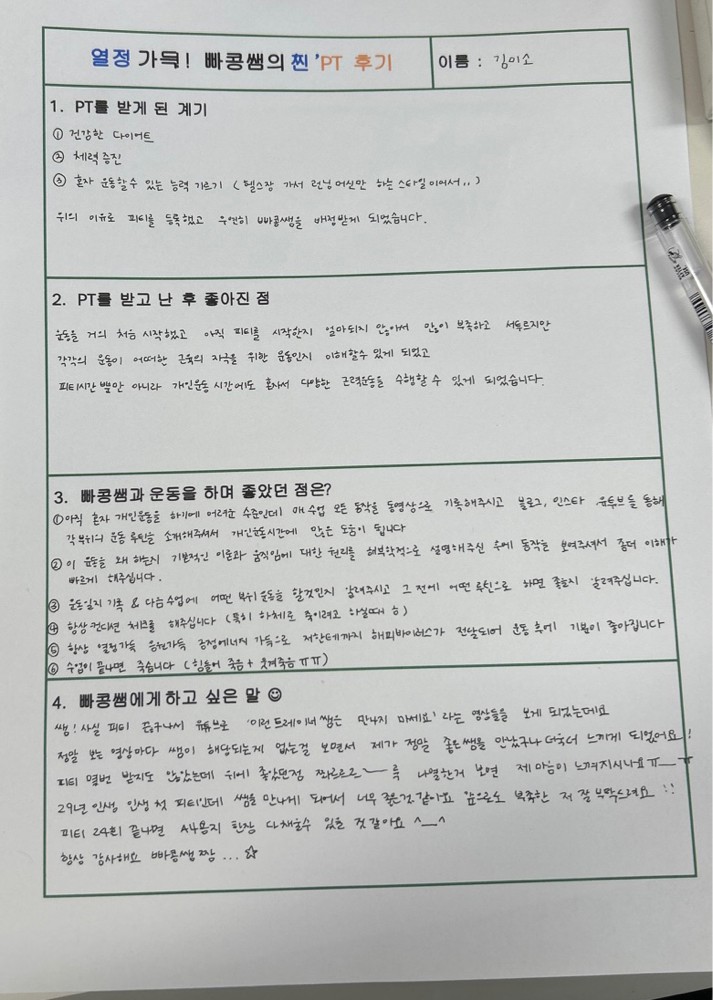 열정 가득! 빠콩쌤의 찐 'PT 후기
이름 : 김미소
1. PT를 받게 된 계기
① 건강한 다이어트
② 체력 증진
③ 혼자 운동할 수 있는 능력 기르기 ( 헬스장 가서 런닝머신만 하는 스타일이어서.. )
위의 이유로 피티를 등록했고 우연히 빠콩쌤을 배정받게 되었습니다.
2. PT를 받고 난 후 좋아진 점
운동을 거의 처음 시작했고 아직 피티를 시작한지 얼마되지 않아서 많이 부족하고 서툴르지만
각각의 운동이 어떠한 근육의 자극을 위한 운동인지 이해할수 있게 되었고
피티시간 뿐만 아니라 개인운동 시간에도 혼자서 다양한 근력운동을 수행할 수 있게 되었습니다.
3. 빠콩쌤과 운동을 하며 좋았던 점은?
①아직 혼자 개인운동을 하기에 어려운 수준인데 매 수업 모든 동작을 동영상으로 기록해주시고 블로그, 인스타 유튜브를 통해
각 부위의 운동 루틴을 소개해주셔서 개인운동시간에 많은 도움이 됩니다
② 이 운동을 왜 하는지 기본적인 이론과 움직임에 대한 원리를 해부학적으로 설명해주신 후에 동작을 보여주셔서 좀더 이해가
빠르게 해주십니다.
③ 운동일지 기록 & 다음수업에 어떤 부위 운동을 할것인지 알려주시고 그 전에 어떤 루틴으로 하면 좋을지 알려주십니다.
④ 항상 컨디션 체크를 해주십니다 ( 특히 하체로 죽이려고 하실때 ㅎ )
⑤ 항상 열정가득 응원가득 긍정에너지 가득으로 저한테까지 해피바이러스가 전달되어 운동 후에 기분이 좋아집니다
⑥ 수업이 끝나면 죽습니다 ( 힘들어 죽음 + 웃겨죽음 ㅠㅠ )
4. 빠콩쌤에게 하고 싶은 말 ☺
쌤! 사실 피티 끊구나서 유튜브로 '이런 트레이너쌤은 만나지 마세요' 라는 영상들을 보게 되었는데요
정말 보는 영상마다 쌤이 해당되는게 없는걸 보면서 제가 정말 좋은쌤을 만났구나 더욱더 느끼게 되었어요!
피티 몇번 받지도 않았는데 위에 좋았던점 쫘르르르~~륵 나열한거 보면 제 마음이 느껴지시나요 ㅠ__ㅠ
29년 인생 인생 첫 피티인데 쌤을 만나게 되어서 너무 좋은것 같아요 앞으로도 부족한 저 잘 부탁드려요 !!
피티 24회 끝나면 A4용지 한장 다채울수 있을 것 같아요 ^__^
항상 감사해요 빠콩쌤 짱 ... ☆